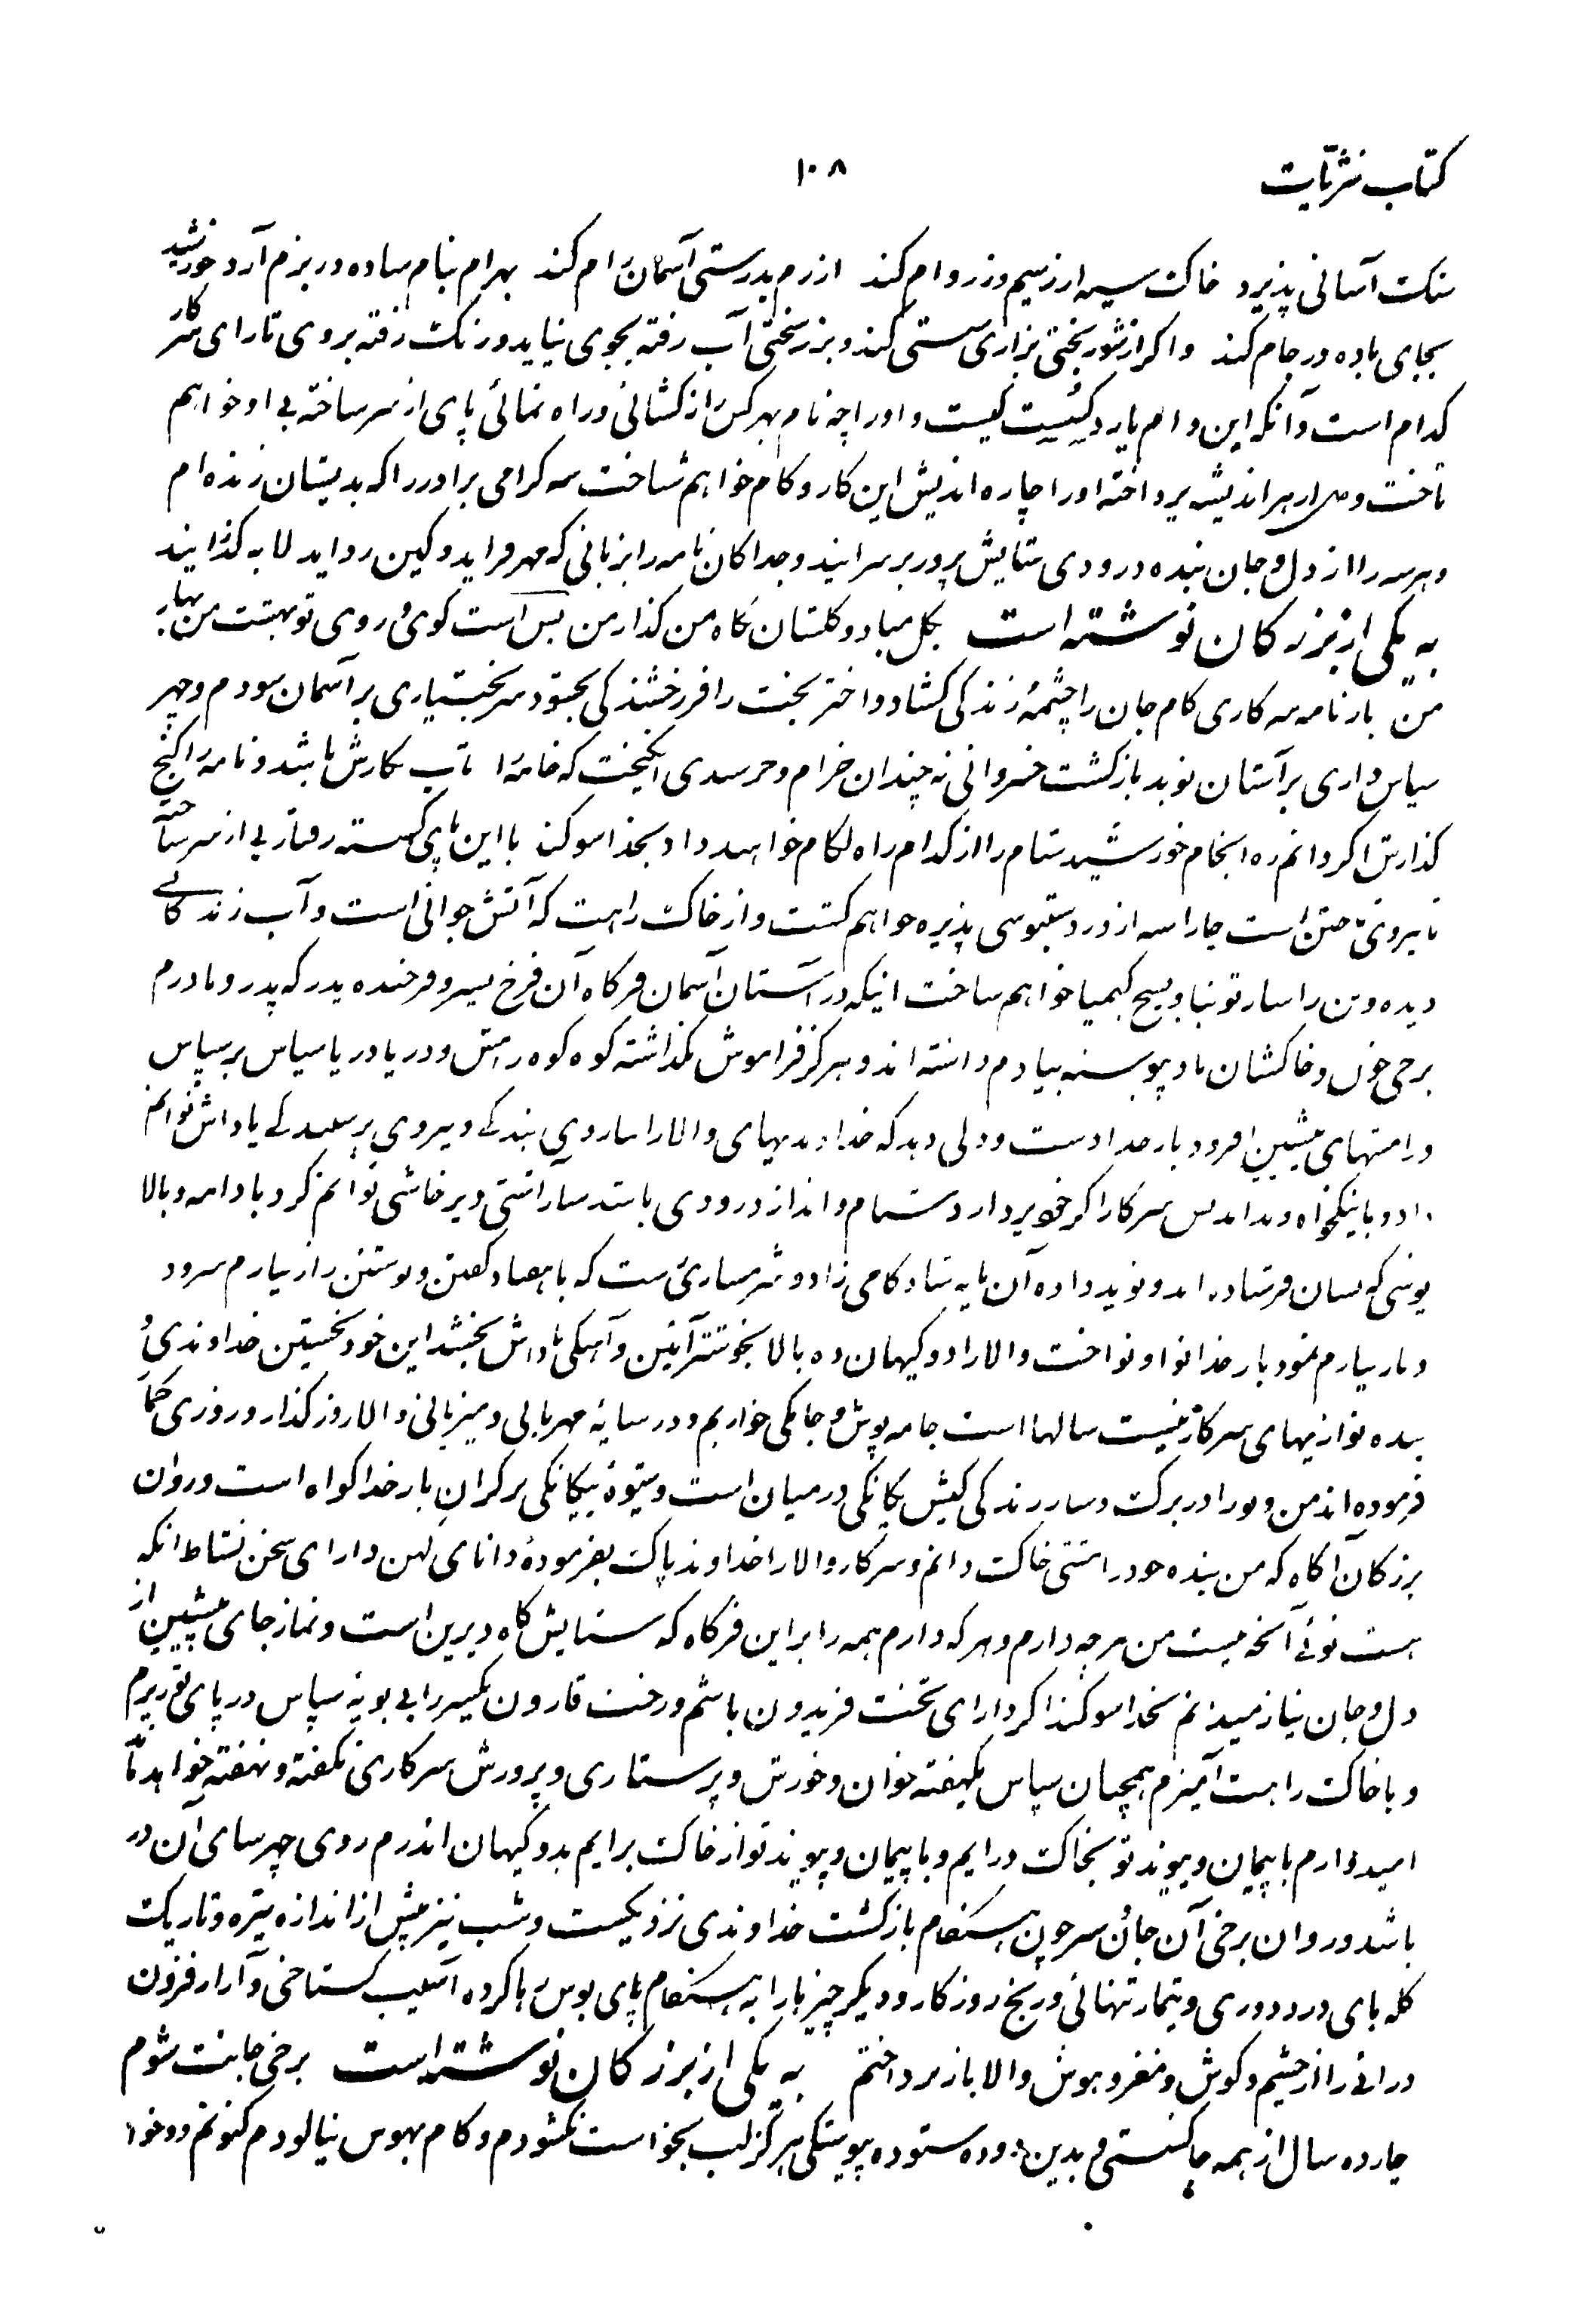 کتاب نثریّات
۱۰۸
سنگ آسانی پذیرد خاک سیه ارز سیم و زر وام کند ازرم بدرستی آسمان رام کند بهرام بنام ساده در بزم آرد خورشید
بجای باده در جام کند واگر از شور بختی بزاری سستی کند و بزر سختی آب رفته بجوی نیاید و رنگ رفته بروی تا رای سرکار
کدام است و آنکه این دام یارد کیست و اورا چه نام بهر کس راز گشائی و راه نمائی پای از سر ساخته بی او خواهم
تاخت و دل از هر اندیشه پرداخته اورا چاره اندیش این کار و کام خواهم شناخت سه گرامی برادر را که بدیشان زنده ام
و هر سه را از دل و جان بنده درودی ستایش پرور بر سرایند و جداگان نامه را بزبانی که مهر فزاید و کین زداید لابه گذارند
به یکی از بزرگان نوشته است بگل مباد و گلستان نگاه من گذار من بس است کوی و روی تو بهشت من بهار
من بارنامه سرکاری کام جان را چشمهٔ زندگی گشاد و اختر بخت را فر رخشندگی بخشود سر بختیاری بر آسمان سودم و چهر
سپاس داری بر آستان نوید بازگشت خسروانی نه چندان خرام و خرسندی انگیخت که خامه را تاب نگارش باشد و نامه را گنج
گذارش اگر دانم ره انجام خورشید ستام را از کدام راه لگام خواهید داد بخدا سوگند با این پای گسسته رفتار پی از سر ساخته
تا نیروی تاختن است چار اسبه از در دستبوسی پذیره خواهم گشت و از خاک راهت که آتش جوانی است و آب زندگانی
دیده و تن را سار توتیا و بسیج کیمیا خواهم ساخت اینکه در آستان آسمان فر گاه آن فرخ پسر و فرخنده پدر که پدر و مادرم
برخی خون و خاکشان باد پیوسته بیادم داشته اند و هرگز فراموش نگذاشته کوه کوه رامش و دریا دریا سپاس بر سپاس
و رامشهای پیشین افزود بار خدا دست و دلی دهد که خداوندیهای والا را سار وی بندگی و پیروی پرستندگی پاداش توانم
داد و با نیکخواه و بد اندیش سرکار اگر خود بردار دشنام و انداز درودی باشد ساز آشتی و پرخاشی توانم کرد بادامه و بالا
پوشی که بسان فرستاده اند و نوید داده آن مایه شادکامی زاد و شرمساری ست که با هفتاد گفتن و نوشتن راز نیارم سرود
و باز نیارم نمود بار خدا نوا و نواخت والا را دو کیهان ده بالا بخوشتر آئین و آهنگی پاداش بخشد این خود نخستین خداوندی و
بنده نوازیهای سرکار نیست سالها است جامه پوش و جامگی خواریم و در سایه مهربانی و میزبانی والا روز گذار و روزی خوار
فرموده اند من و تو را در برگ و ساز زندگی کیش یگانگی در میان است و شیوه بیگانگی بر کران بار خدا گواه است و روان
بزرگان آگاه که من بنده خود را مشتی خاک دانم و سرکار والا را خداوند پاک بفرمودهٔ دانای کهن دارای سخن نشاط آنکه
هست توئی آنچه نیست من هرچه دارم و هر که دارم همه را بر این فر گاه که ستایش گاه دیرین است و نماز جای پیشین از
دل و جان نیاز میدانم بخدا سوگند اگر دارای تخت فریدون باشم و رخت قارون یکسر را بی بویهٔ سپاس در پای تو ریزم
و با خاک راهت آمیزم همچنان سپاس یکهفته خوان و خورش و پرستاری و پرورش سرکاری نگفته و نهفته خواهد ماند
امیدوارم با پیمان و پیوند تو بخاک درایم و با پیمان و پیوند تو از خاک برایم بدو کیهان اندرم روی چهر سای آن در
باشد و روان برخی آن جان سر چون هنگام بازگشت خداوندی نزدیکست و شب نیز بیش از اندازه تیره و تاریک
گله بای درد دوری و تیمار تنهائی و رنج روزگار و دیگر چیزها را به هنگام پای بوس رها کرده آسیب گستاخی و آزار فزون
درائی را از چشم و گوش و مغز و هوش والا باز برداختم به یکی از بزرگان نوشته است برخی جانت شوم
چارده سال از همه جا گسستی و بدین دوده ستوده پیوستگی هرگز لب بخواست نگشودم و کام بهوس نیالودم کنونم دو خوا